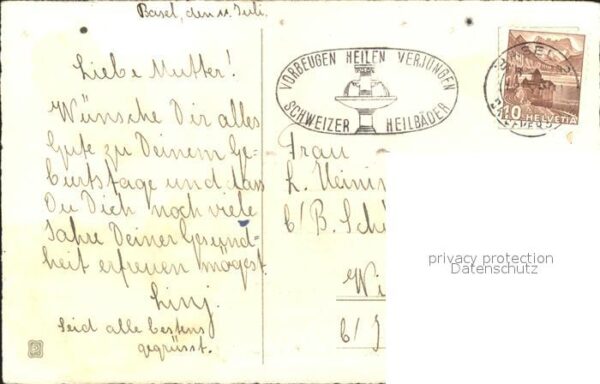 Basel, den 11. Juli.
Liebe Mutter!
Wünsche Dir alles
Gute zu Deinem Ge-
burtstage und dass
Du Dich noch viele
Jahre Deiner Gesund-
heit erfreuen mögest.
Linj.
Seid alle bestens
gegrüsst.
VORBEUGEN HEILEN VERJÜNGEN
SCHWEIZER HEILBÄDER
BASEL
10 HELVETIA
Frau
L.
b/B. Sch
Wi
b/J
privacy protection
Datenschutz